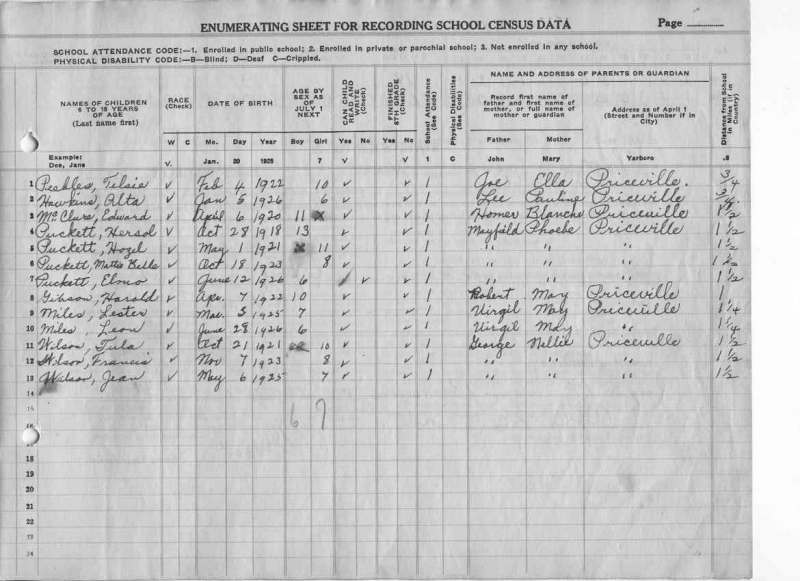 ENUMERATING SHEET FOR RECORDING SCHOOL CENSUS DATA Page
SCHOOL ATTENDANCE CODE:—1. Enrolled in public school; 2. Enrolled in private or parochial school; 3. Not enrolled in any school.
PHYSICAL DISABILITY CODE:—B—Blind; D—Deaf C—Crippled.
NAMES OF CHILDREN 6 TO 18 YEARS OF AGE (Last name first)
RACE (Check) W C
DATE OF BIRTH Mo. Day Year
AGE BY SEX AS OF JULY 1 NEXT Boy Girl
CAN CHILD READ AND WRITE (Check) Yes No
FINISHED 8TH GRADE (Check) Yes No
School Attendance (See Code)
Physical Disabilities (See Code)
NAME AND ADDRESS OF PARENTS OR GUARDIAN
Record first name of father and first name of mother, or full name of mother or guardian
Father Mother
Address as of April 1 (Street and Number if in City)
Distance from School in Miles (if in Country)
Example: Doe, Jane V. Jan. 20 1925 7 V V 1 C John Mary Yarboro .8
1 Peebles, Tilsie ✓ Feb 4 1922 10 ✓ ✓ 1 Joe Ella Priceville. 3/4
2 Hawkins, Alta ✓ Jan 5 1926 6 ✓ ✓ 1 Lee Pauline Priceville 3/4
3 McClure, Edward ✓ April 6 1920 11 x ✓ ✓ 1 Homer Blanche Priceville 1 1/2
4 Puckett, Hersol ✓ Oct 28 1918 13 ✓ ✓ 1 Mayfield Phoebe Priceville 1 1/2
5 Puckett, Hozel ✓ May 1 1921 x 11 ✓ ✓ 1 " " " " " " 1 1/2
6 Puckett, Mattie Belle ✓ Oct 18 1923 8 ✓ ✓ 1 " " " " " " 1 1/2
7 Puckett, Elmo ✓ June 12 1926 6 ✓ ✓ 1 " " " " " " 1 1/2
8 Gibson, Harold ✓ Apr. 7 1922 10 ✓ ✓ 1 Robert May Priceville 1
9 Miles, Lester ✓ Mar. 5 1925 7 ✓ ✓ 1 Virgil May Priceville 1 1/4
10 Miles, Leon ✓ June 28 1926 6 ✓ ✓ 1 Virgil May " " 1 1/4
11 Wilson, Tula ✓ Oct 21 1921 10 ✓ ✓ 1 George Nellie Priceville 1 1/2
12 Wilson, Francis ✓ Nov 7 1923 8 ✓ ✓ 1 " " " " " " 1 1/2
13 Wilson, Jean ✓ May 6 1925 7 ✓ ✓ 1 " " " " " " 1 1/2
14
15 6 7
16
18
19
20
21
22
23
24